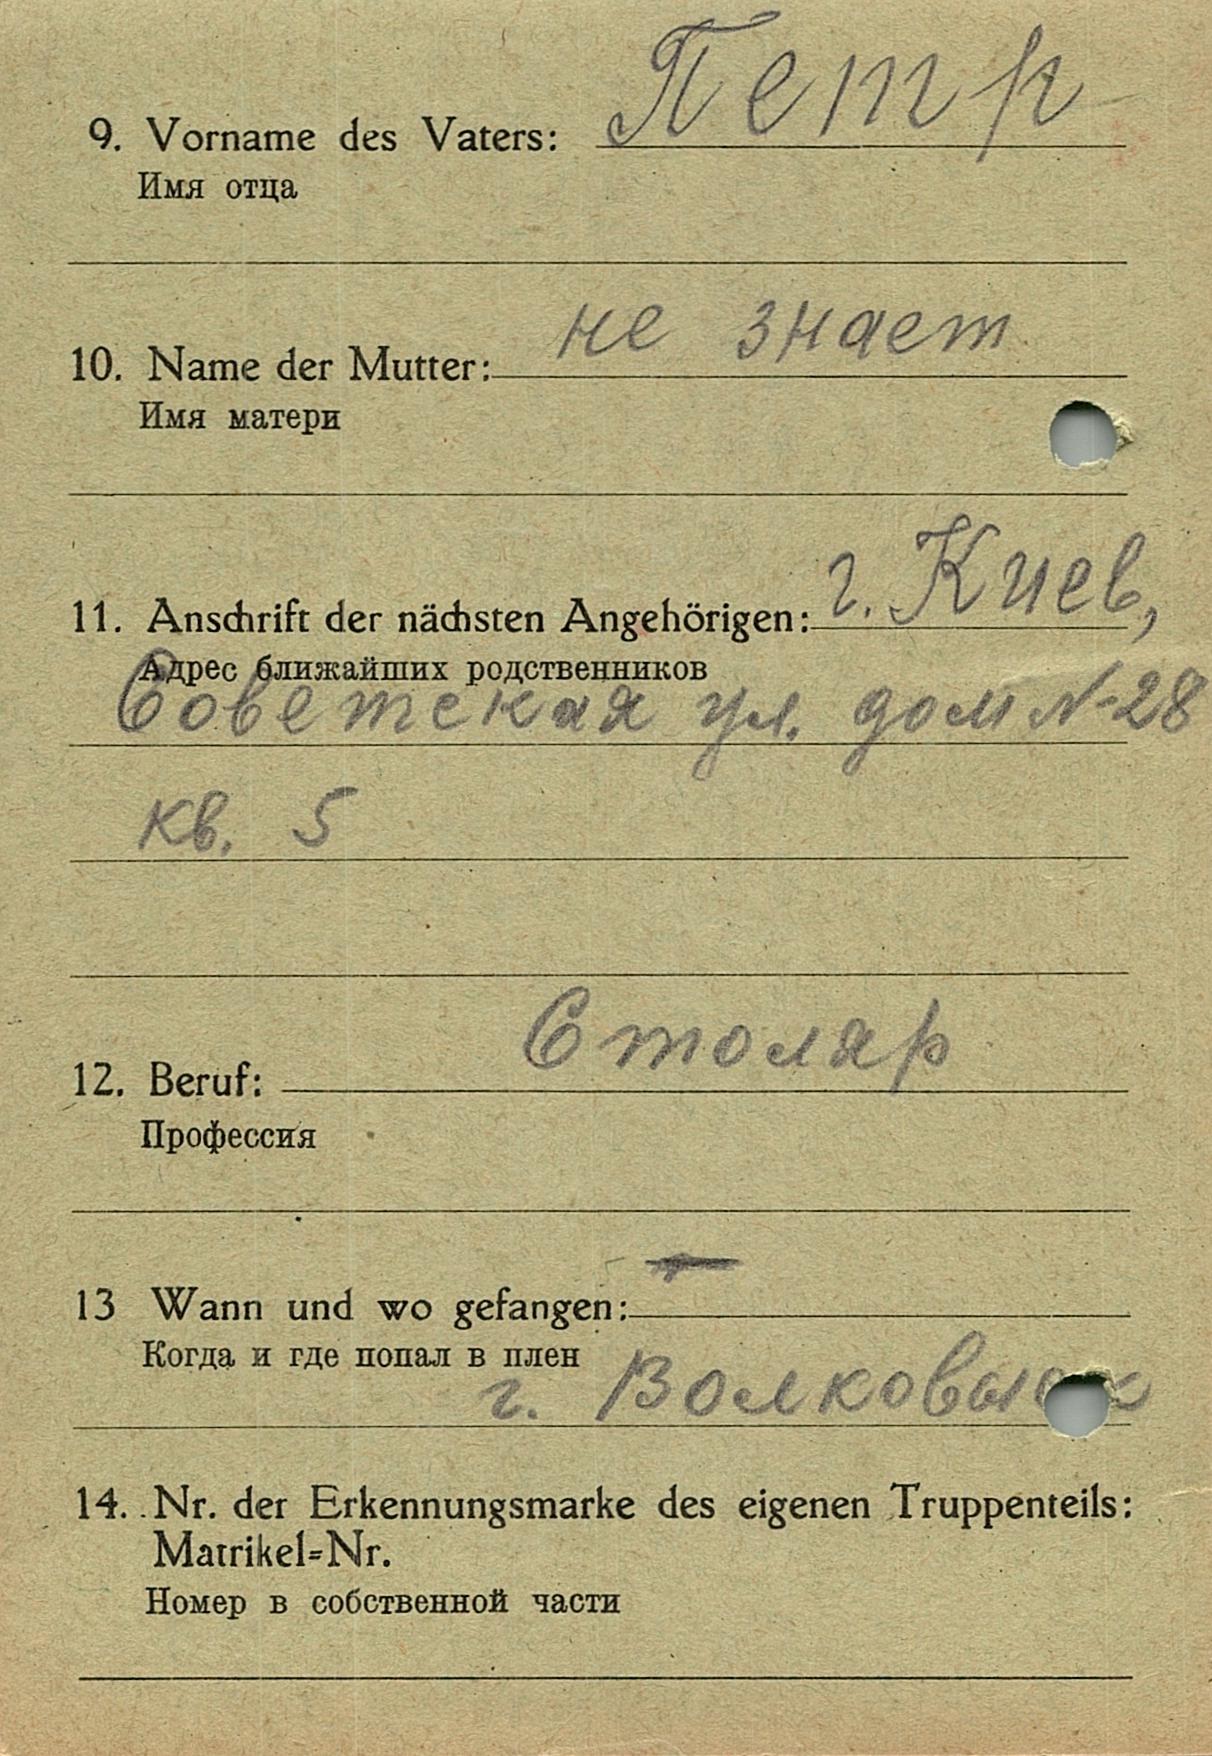 Петр
9. Vorname des Vaters:
Имя отца
не знает
10. Name der Mutter:
Имя матери
11. Anschrift der nächsten Angehörigen: г. Киев,
Адрес ближайших родственников
Советская ул. дом №28
кв. 5
Столяр
12. Beruf:
Профессия
13 Wann und wo gefangen:
Когда и где попал в плен
г. Волковыск
14. Nr. der Erkennungsmarke des eigenen Truppenteils:
Matrikel=Nr.
Номер в собственной части